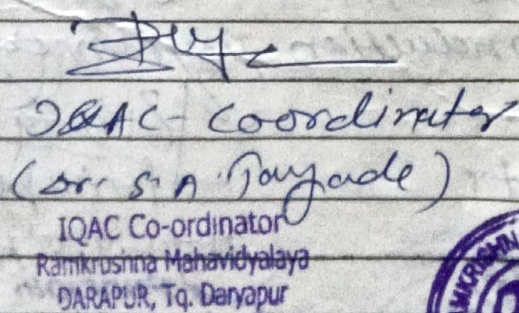 IQAC - Coordinator
(Dr. S. A. Tayade)
IQAC Co-ordinator
Ramkrushna Mahavidyalaya
DARAPUR, Tq. Daryapur